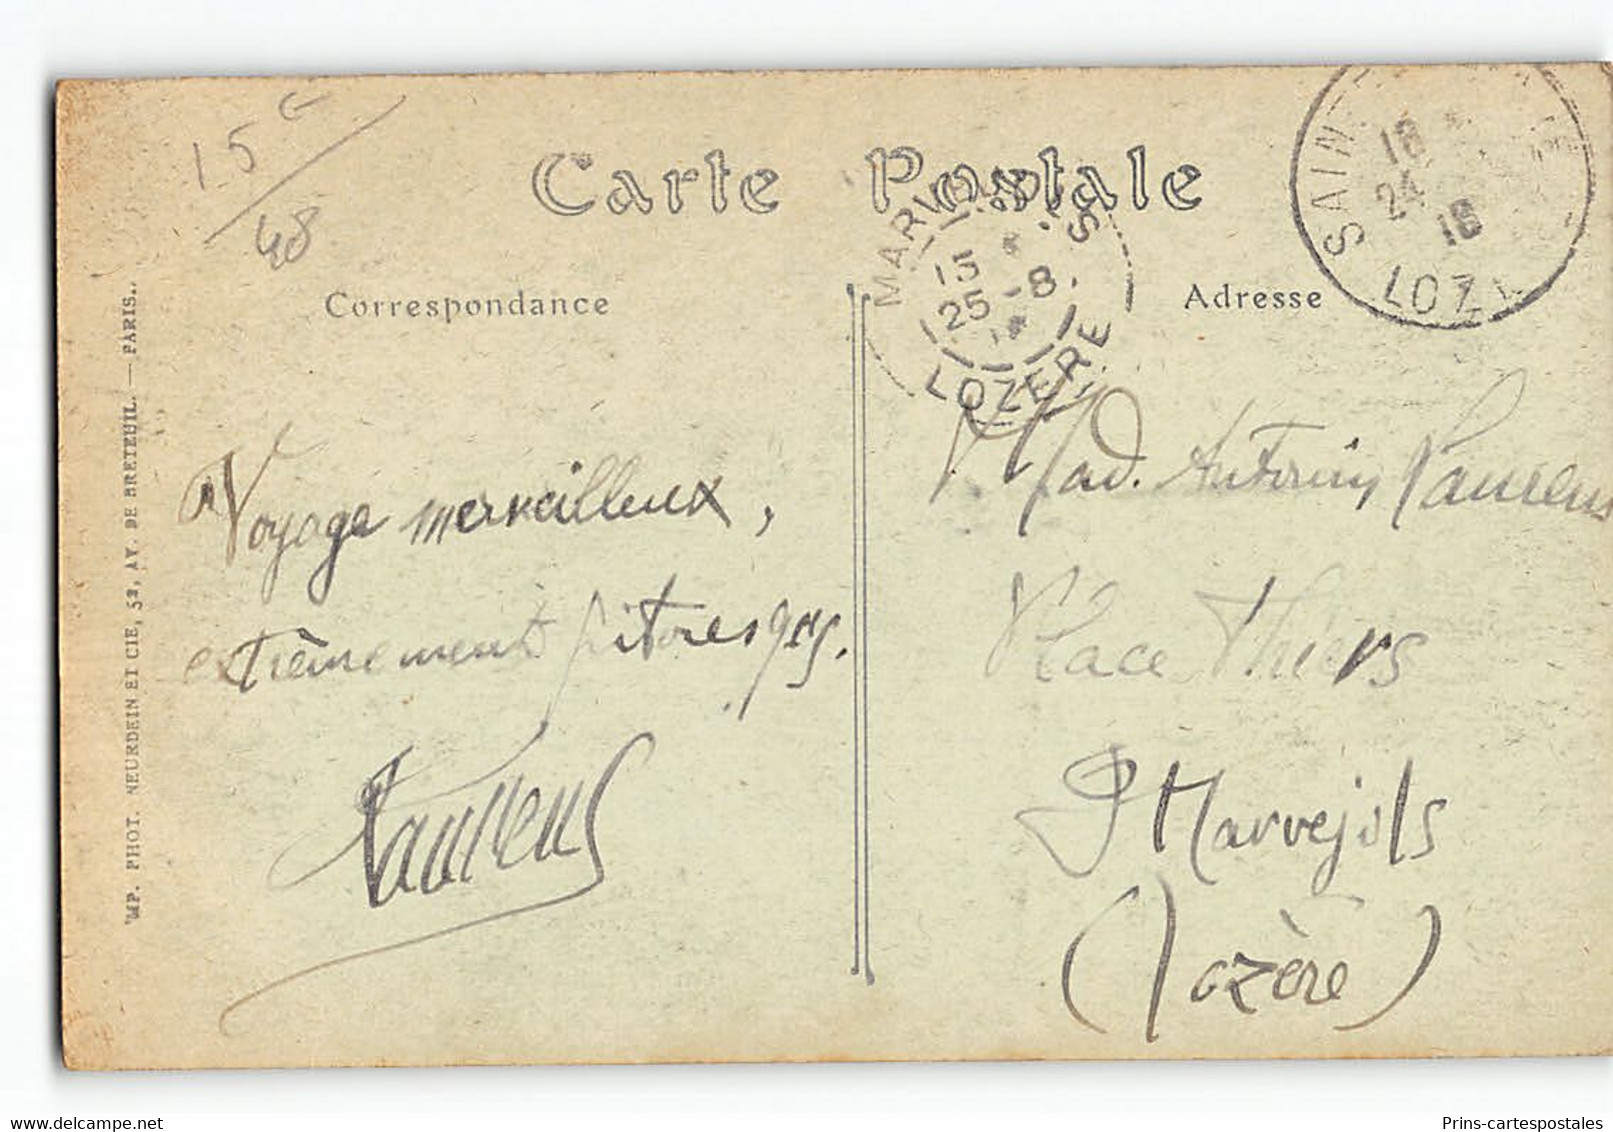 15
48
Carte Postale
Correspondance
Adresse
MARVEJOLS
15
25 -8
LOZERE
SAIN
18
24
18
LOZ
IMP. PHOT. NEURDEIN ET CIE, 52, AV. DE BRETEUIL. — PARIS.
Voyage merveilleux,
extrêmement pitoresques.
Laurens
Mad. Antonin Laurens
Place Thiers
Marvejols
(Lozère)
Prins-cartespostales